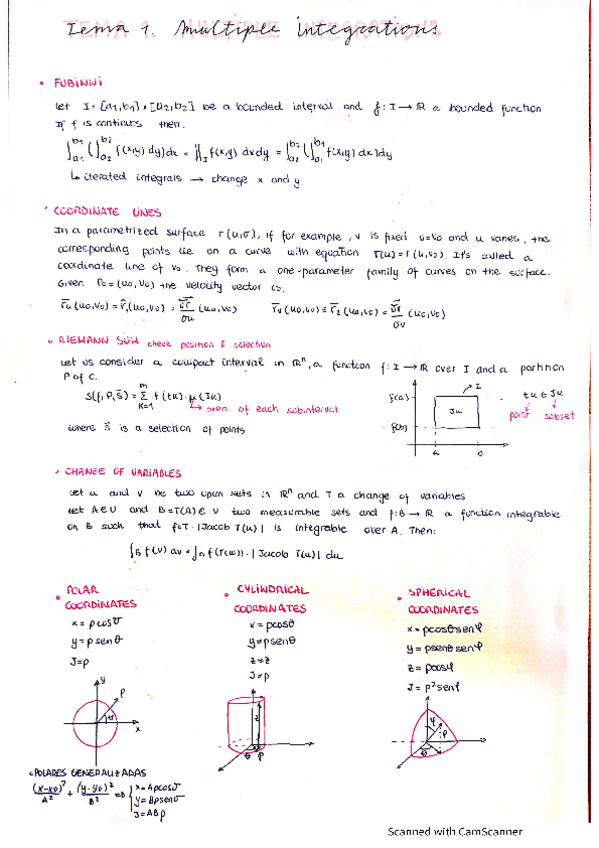 Tema 1. Multiple integrations
• FUBINNI
let I = [a1,b1] × [a2,b2] be a bounded interval and f: I → R a bounded function
If f is continuos then.
∫a1^b1 (∫a2^b2 f(x,y) dy) dx = ∬I f(x,y) dxdy = ∫a2^b2 (∫a1^b1 f(x,y) dx) dy
↳ iterated integrals → change x and y.
• COORDINATE LINES
In a parametrized surface r(u,v), if for example, v is fixed v=v0 and u varies, the
corresponding points lie on a curve with equation r(u) = r(u,v0). It's called a
coordinate line of v0. They form a one-parameter family of curves on the surface.
Given P0=(u0,v0) the velocity vector is:
r̄u(u0,v0) = r̄1(u0,v0) = ∂r̄/∂u (u0,v0) r̄v(u0,v0) = r̄2(u0,v0) = ∂r̄/∂v (u0,v0)
• RIEMANN SUM check position & selection
Let us consider a compact interval in Rⁿ, a function f: I → R over I and a partition
P of C.
S(f,P,S̄) = Σ k=1 m f(tk)·μ(Jk)
↳ area of each subinterval
where S̄ is a selection of points
f(a)
f(b)
Jk
I
a
b
tk ∈ Jk
point subset
• CHANGE OF VARIABLES
Let u and v be two open sets in Rⁿ and T a change of variables
Let A∈U and B=T(A)∈V two measurable sets and f: B → R a function integrable
on B such that f∘T·|Jacob T(u)| is integrable over A. Then:
∫B f(v) dv = ∫A f(T(u))·|Jacob T(u)| du
• POLAR COORDINATES
x = ρcosθ
y = ρsenθ
J = ρ
y
P
θ
x
• CYLINDRICAL COORDINATES
x = ρcosθ
y = ρsenθ
z = z
J = ρ
z
θ ρ
• SPHERICAL COORDINATES
x = ρcosθsenφ
y = ρsenθsenφ
z = ρcosφ
J = ρ²senφ
φ
P
θ
• POLARES GENERALIZADAS
(x-x0)²/A² + (y-y0)²/B² => { x = Aρcosθ
y = Bρsenθ
J = ABρ
Scanned with CamScanner